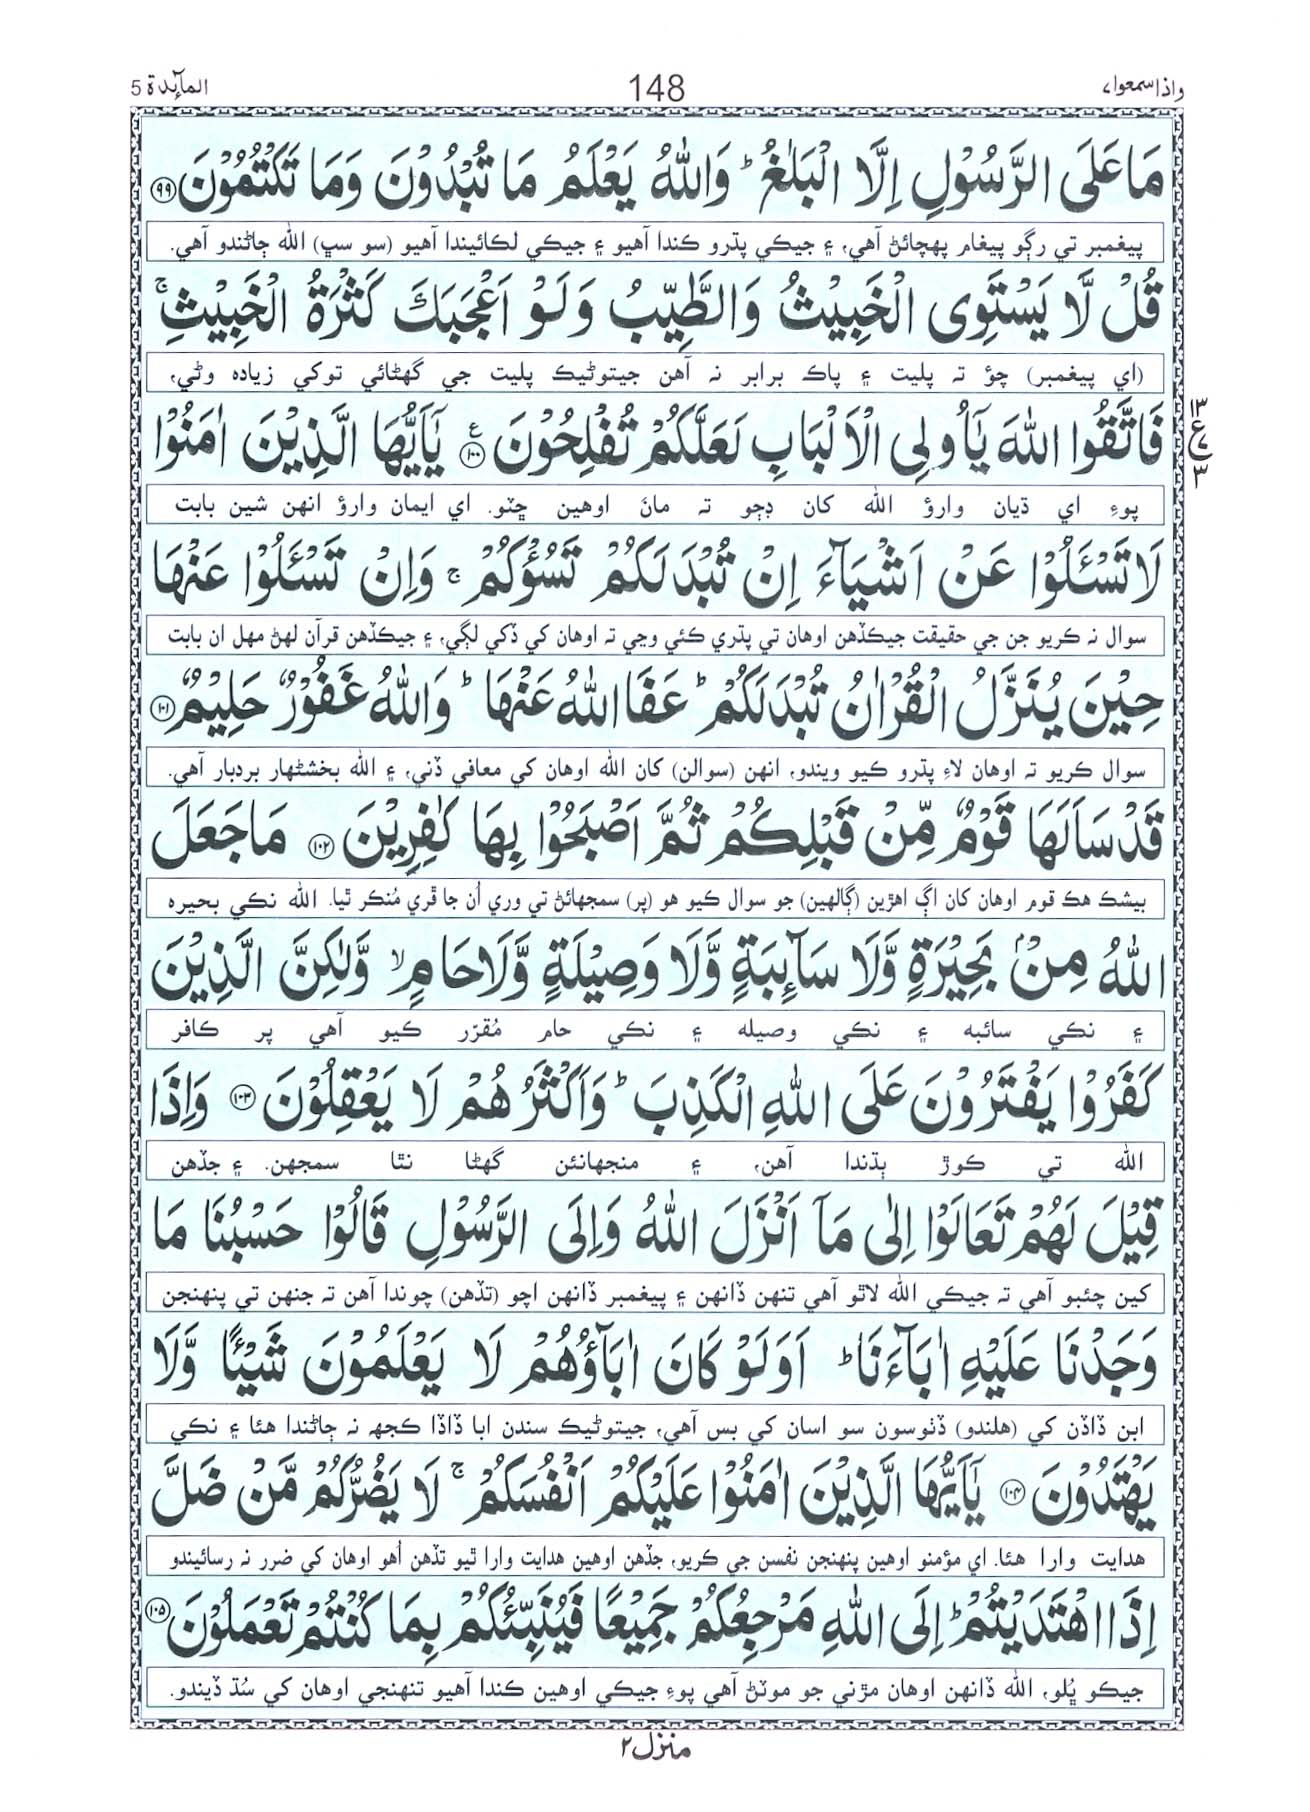 واذاسمعوا۷ 148 المآئدة 5
مَا عَلَى الرَّسُوْلِ اِلَّا الْبَلٰغُ ؕ وَاللّٰهُ يَعْلَمُ مَا تُبْدُوْنَ وَمَا تَكْتُمُوْنَ ۹۹
پيغمبر تي رڳو پيغام پهچائڻ آهي، ۽ جيڪي پڌرو ڪندا آهيو ۽ جيڪي لڪائيندا آهيو (سو سڀ) الله ڄاڻندو آهي.
قُلْ لَّا يَسْتَوِى الْخَبِيْثُ وَالطَّيِّبُ وَلَوْ اَعْجَبَكَ كَثْرَةُ الْخَبِيْثِ ۚ
(اي پيغمبر) چؤ ته پليت ۽ پاڪ برابر نه آهن جيتوڻيڪ پليت جي گهڻائي توکي زياده وڻي،
فَاتَّقُوا اللّٰهَ يٰٓاُولِى الْاَلْبَابِ لَعَلَّكُمْ تُفْلِحُوْنَ ۱۰۰ ع يٰٓاَيُّهَا الَّذِيْنَ اٰمَنُوْا
۱۳ ع ۷ ۳
پوءِ اي ڌيان وارؤ الله کان ڊڄو ته مانَ اوهين ڇٽو. اي ايمان وارؤ انهن شين بابت
لَا تَسْـَٔلُوْا عَنْ اَشْيَآءَ اِنْ تُبْدَ لَكُمْ تَسُؤْكُمْ ۚ وَاِنْ تَسْـَٔلُوْا عَنْهَا
سوال نہ ڪريو جن جي حقيقت جيڪڏهن اوهان تي پڌري ڪئي وڃي ته اوهان کي ڏکي لڳي، ۽ جيڪڏهن قرآن لهڻ مهل ان بابت
حِيْنَ يُنَزَّلُ الْقُرْاٰنُ تُبْدَ لَكُمْ ؕ عَفَا اللّٰهُ عَنْهَا ؕ وَاللّٰهُ غَفُوْرٌ حَلِيْمٌ ۱۰۱
سوال ڪريو ته اوهان لاءِ پڌرو ڪيو ويندو، انهن (سوالن) کان الله اوهان کي معافي ڏني، ۽ الله بخشڻهار بردبار آهي.
قَدْ سَاَلَهَا قَوْمٌ مِّنْ قَبْلِكُمْ ثُمَّ اَصْبَحُوْا بِهَا كٰفِرِيْنَ ۱۰۲ مَا جَعَلَ
بيشڪ هڪ قوم اوهان کان اڳ اهڙين (ڳالهين) جو سوال ڪيو هو (پر) سمجهائڻ تي وري اُن جا ڦري مُنڪر ٿيا. الله نڪي بحيره
اللّٰهُ مِنْۢ بَحِيْرَةٍ وَّلَا سَآئِبَةٍ وَّلَا وَصِيْلَةٍ وَّلَا حَامٍ ۙ وَّلٰكِنَّ الَّذِيْنَ
۽ نڪي سائبه ۽ نڪي وصيله ۽ نڪي حام مُقرّر ڪيو آهي پر ڪافر
كَفَرُوْا يَفْتَرُوْنَ عَلَى اللّٰهِ الْكَذِبَ ؕ وَاَكْثَرُهُمْ لَا يَعْقِلُوْنَ ۱۰۳ وَاِذَا
الله تي ڪوڙ ٻڌندا آهن، ۽ منجهانئن گهڻا نٿا سمجهن. ۽ جڏهن
قِيْلَ لَهُمْ تَعَالَوْا اِلٰى مَآ اَنْزَلَ اللّٰهُ وَاِلَى الرَّسُوْلِ قَالُوْا حَسْبُنَا مَا
کين چئبو آهي ته جيڪي الله لاٿو آهي تنهن ڏانهن ۽ پيغمبر ڏانهن اچو (تڏهن) چوندا آهن ته جنهن تي پنهنجن
وَجَدْنَا عَلَيْهِ اٰبَآءَنَا ؕ اَوَلَوْ كَانَ اٰبَآؤُهُمْ لَا يَعْلَمُوْنَ شَيْـًٔا وَّلَا
ابن ڏاڏن کي (هلندو) ڏٺوسون سو اسان کي بس آهي، جيتوڻيڪ سندن ابا ڏاڏا ڪجهه نه ڄاڻندا هئا ۽ نڪي
يَهْتَدُوْنَ ۱۰۴ يٰٓاَيُّهَا الَّذِيْنَ اٰمَنُوْا عَلَيْكُمْ اَنْفُسَكُمْ ۚ لَا يَضُرُّكُمْ مَّنْ ضَلَّ
هدايت وارا هئا. اي مؤمنو اوهين پنهنجن نفسن جي ڪريو، جڏهن اوهين هدايت وارا ٿيو تڏهن اُهو اوهان کي ضرر نه رسائيندو
اِذَا اهْتَدَيْتُمْ ؕ اِلَى اللّٰهِ مَرْجِعُكُمْ جَمِيْعًا فَيُنَبِّئُكُمْ بِمَا كُنْتُمْ تَعْمَلُوْنَ ۱۰۵
جيڪو ڀُلو، الله ڏانهن اوهان مڙني جو موٽڻ آهي پوءِ جيڪي اوهين ڪندا آهيو تنهنجي اوهان کي سُڌ ڏيندو.
منزل۲